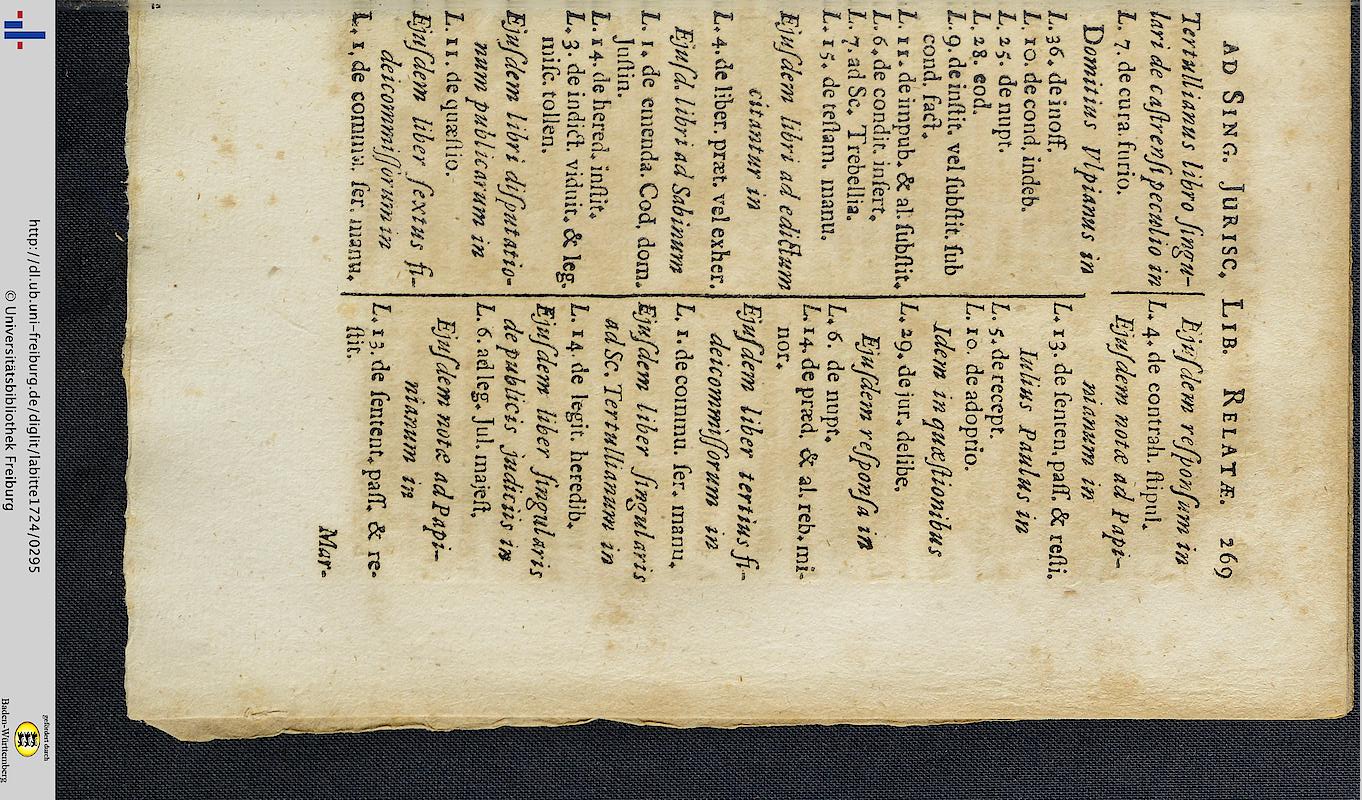 AD SING. JURISC. LIB. RELATÆ. 269
Tertullianus libro ſingu-
lari de caſtrenſi peculio in
L. 7. de cura. furio.
Domitius Vlpianus in
L. 36. de inoff.
L. 10. de cond. indeb.
L. 25. de nupt.
L. 28. eod.
L. 9. de inſtit. vel ſubſtit. ſub
cond. fact.
L. 11. de inpub. & al. ſubſtit.
L. 6. de condit. inſert.
L. 7. ad Sc. Trebellia.
L. 15. de teſtam. manu.
Ejuſdem libri ad edictum
citantur in
L. 4. de liber. præt. vel exher.
Ejuſd. libri ad Sabinum
L. 1. de emenda. Cod. dom.
Juſtin.
L. 14. de hered. inſtit.
L. 3. de indict. viduit. & leg.
miſc. tollen.
Ejuſdem libri diſputatio-
num publicarum in
L. 11. de quæſtio.
Ejuſdem liber ſextus fi-
deicommiſſorum in
L. 1. de commu. ſer. manu.
Ejuſdem reſponſum in
L. 4. de contrah. ſtipul.
Ejuſdem notæ ad Papi-
nianum in
L. 13. de ſenten. paſſ. & reſti.
Iulius Paulus in
L. 5. de recept.
L. 10. de adoptio.
Idem in quæſtionibus
L. 29. de jur. delibe.
Ejuſdem reſponſa in
L. 6. de nupt.
L. 14. de præd. & al. reb. mi-
nor.
Ejuſdem liber tertius fi-
deicommiſſorum in
L. 1. de commu. ſer. manu.
Ejuſdem liber ſingularis
ad Sc. Tertullianum in
L. 14. de legit. heredib.
Ejuſdem liber ſingularis
de publicis judiciis in
L. 6. ad leg. Jul. majeſt.
Ejuſdem notæ ad Papi-
nianum in
L. 13. de ſentent. paſſ. & re-
ſtit.
Mar-
http://dl.ub.uni-freiburg.de/diglit/labitte1724/0295
© Universitätsbibliothek Freiburg
gefördert durch
Baden-Württemberg